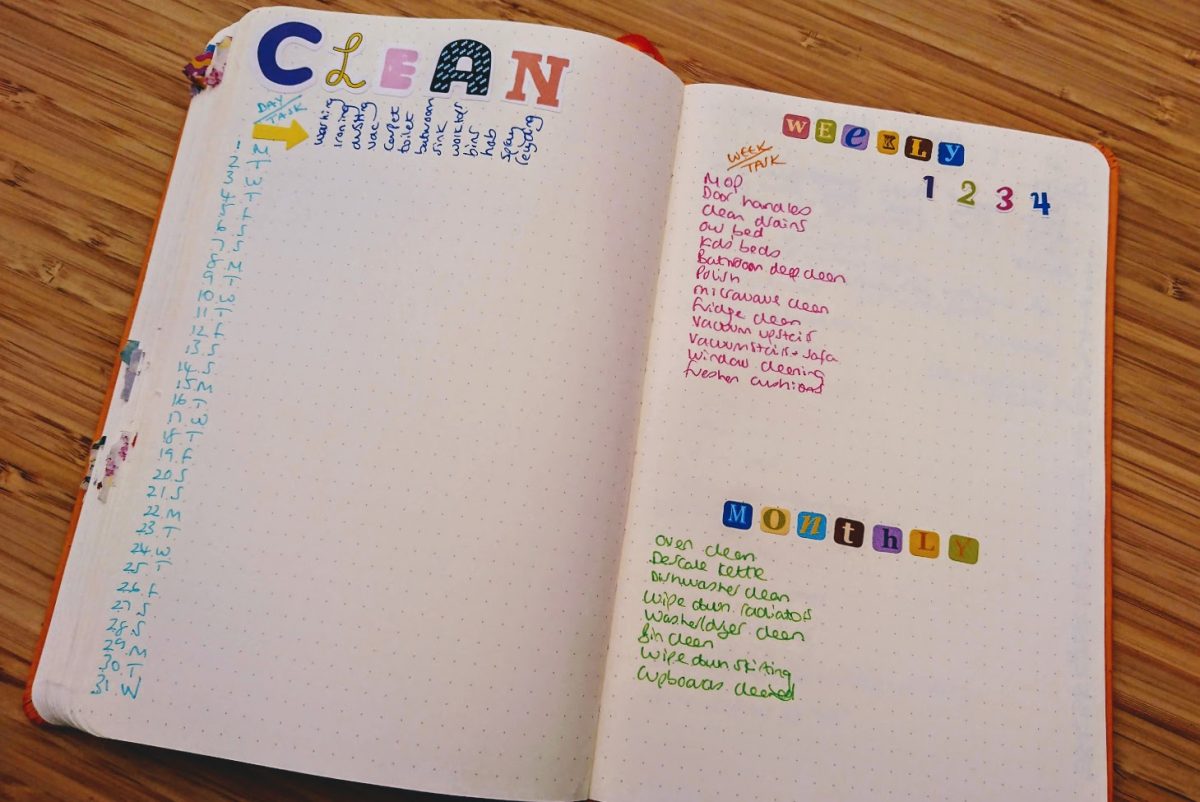 CLEAN
DAY
TASK
washing
ironing
dusting
vac
carpet
toilet
bathroom
sink
worktops
bins
hob
spray
recycling
1 W
2 T
3
4
5
6
7
8
9
10
11
12
13
14
15
16
17
18
19
20 S
21 S
22 M
23 T
24 W
25 T
26 F
27 S
28 S
29 M
30 T
31 W
WEEKLY
WEEK
TASK
1 2 3 4
Mop
Door handles
clean drains
our bed
kids beds
Bathroom deep clean
Polish
microwave clean
fridge clean
vacuum upstairs
vacuum stairs + sofa
window cleaning
freshen cushions
MOnthLY
oven clean
Descale kettle
Dishwasher clean
Wipe down radiators
Washer/dryer clean
Bin clean
Wipe down skirting
Cupboards cleaned